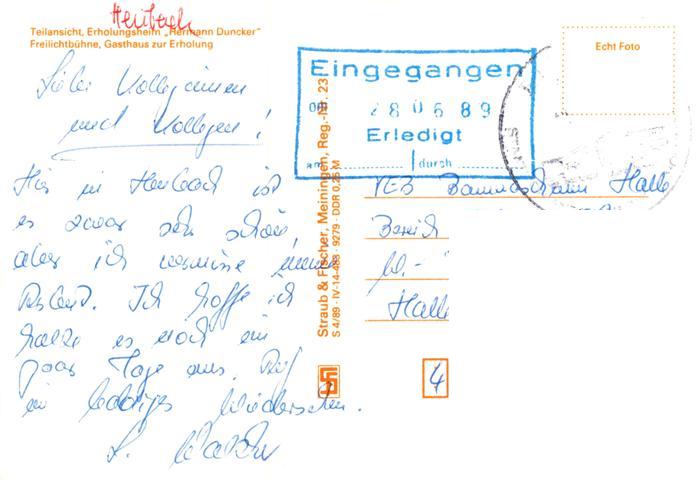 Heubach
Teilansicht, Erholungsheim „Hermann Duncker“
Freilichtbühne, Gasthaus zur Erholung
Liebe Kolleginnen
und Kollegen!
Hier in Heubach ist
es zwar sehr schön,
aber ich vermisse
Ich hoffe ich
halte es noch ein
paar Tage aus. Auf
ein baldiges Wiedersehen.
Straub & Fischer, Meiningen, Reg.-Nr. 23
S 4/89 · IV-14-483 · 9279 · DDR 0,25 M
Eingegangen
28 06 89
Erledigt
am durch
Echt Foto
VEB Halle
Bereich
W.-
Halle
4